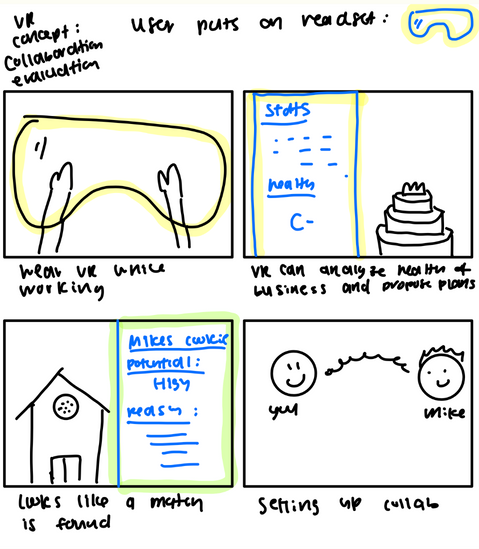 VR
concept:
collaboration
evaluation
User puts on headset:
wear VR while
working
Stats
health
C-
VR can analyze health of
business and propose plans
Mikes cookie
potential:
High
reason:
Looks like a match
is found
you
Mike
Setting up collab